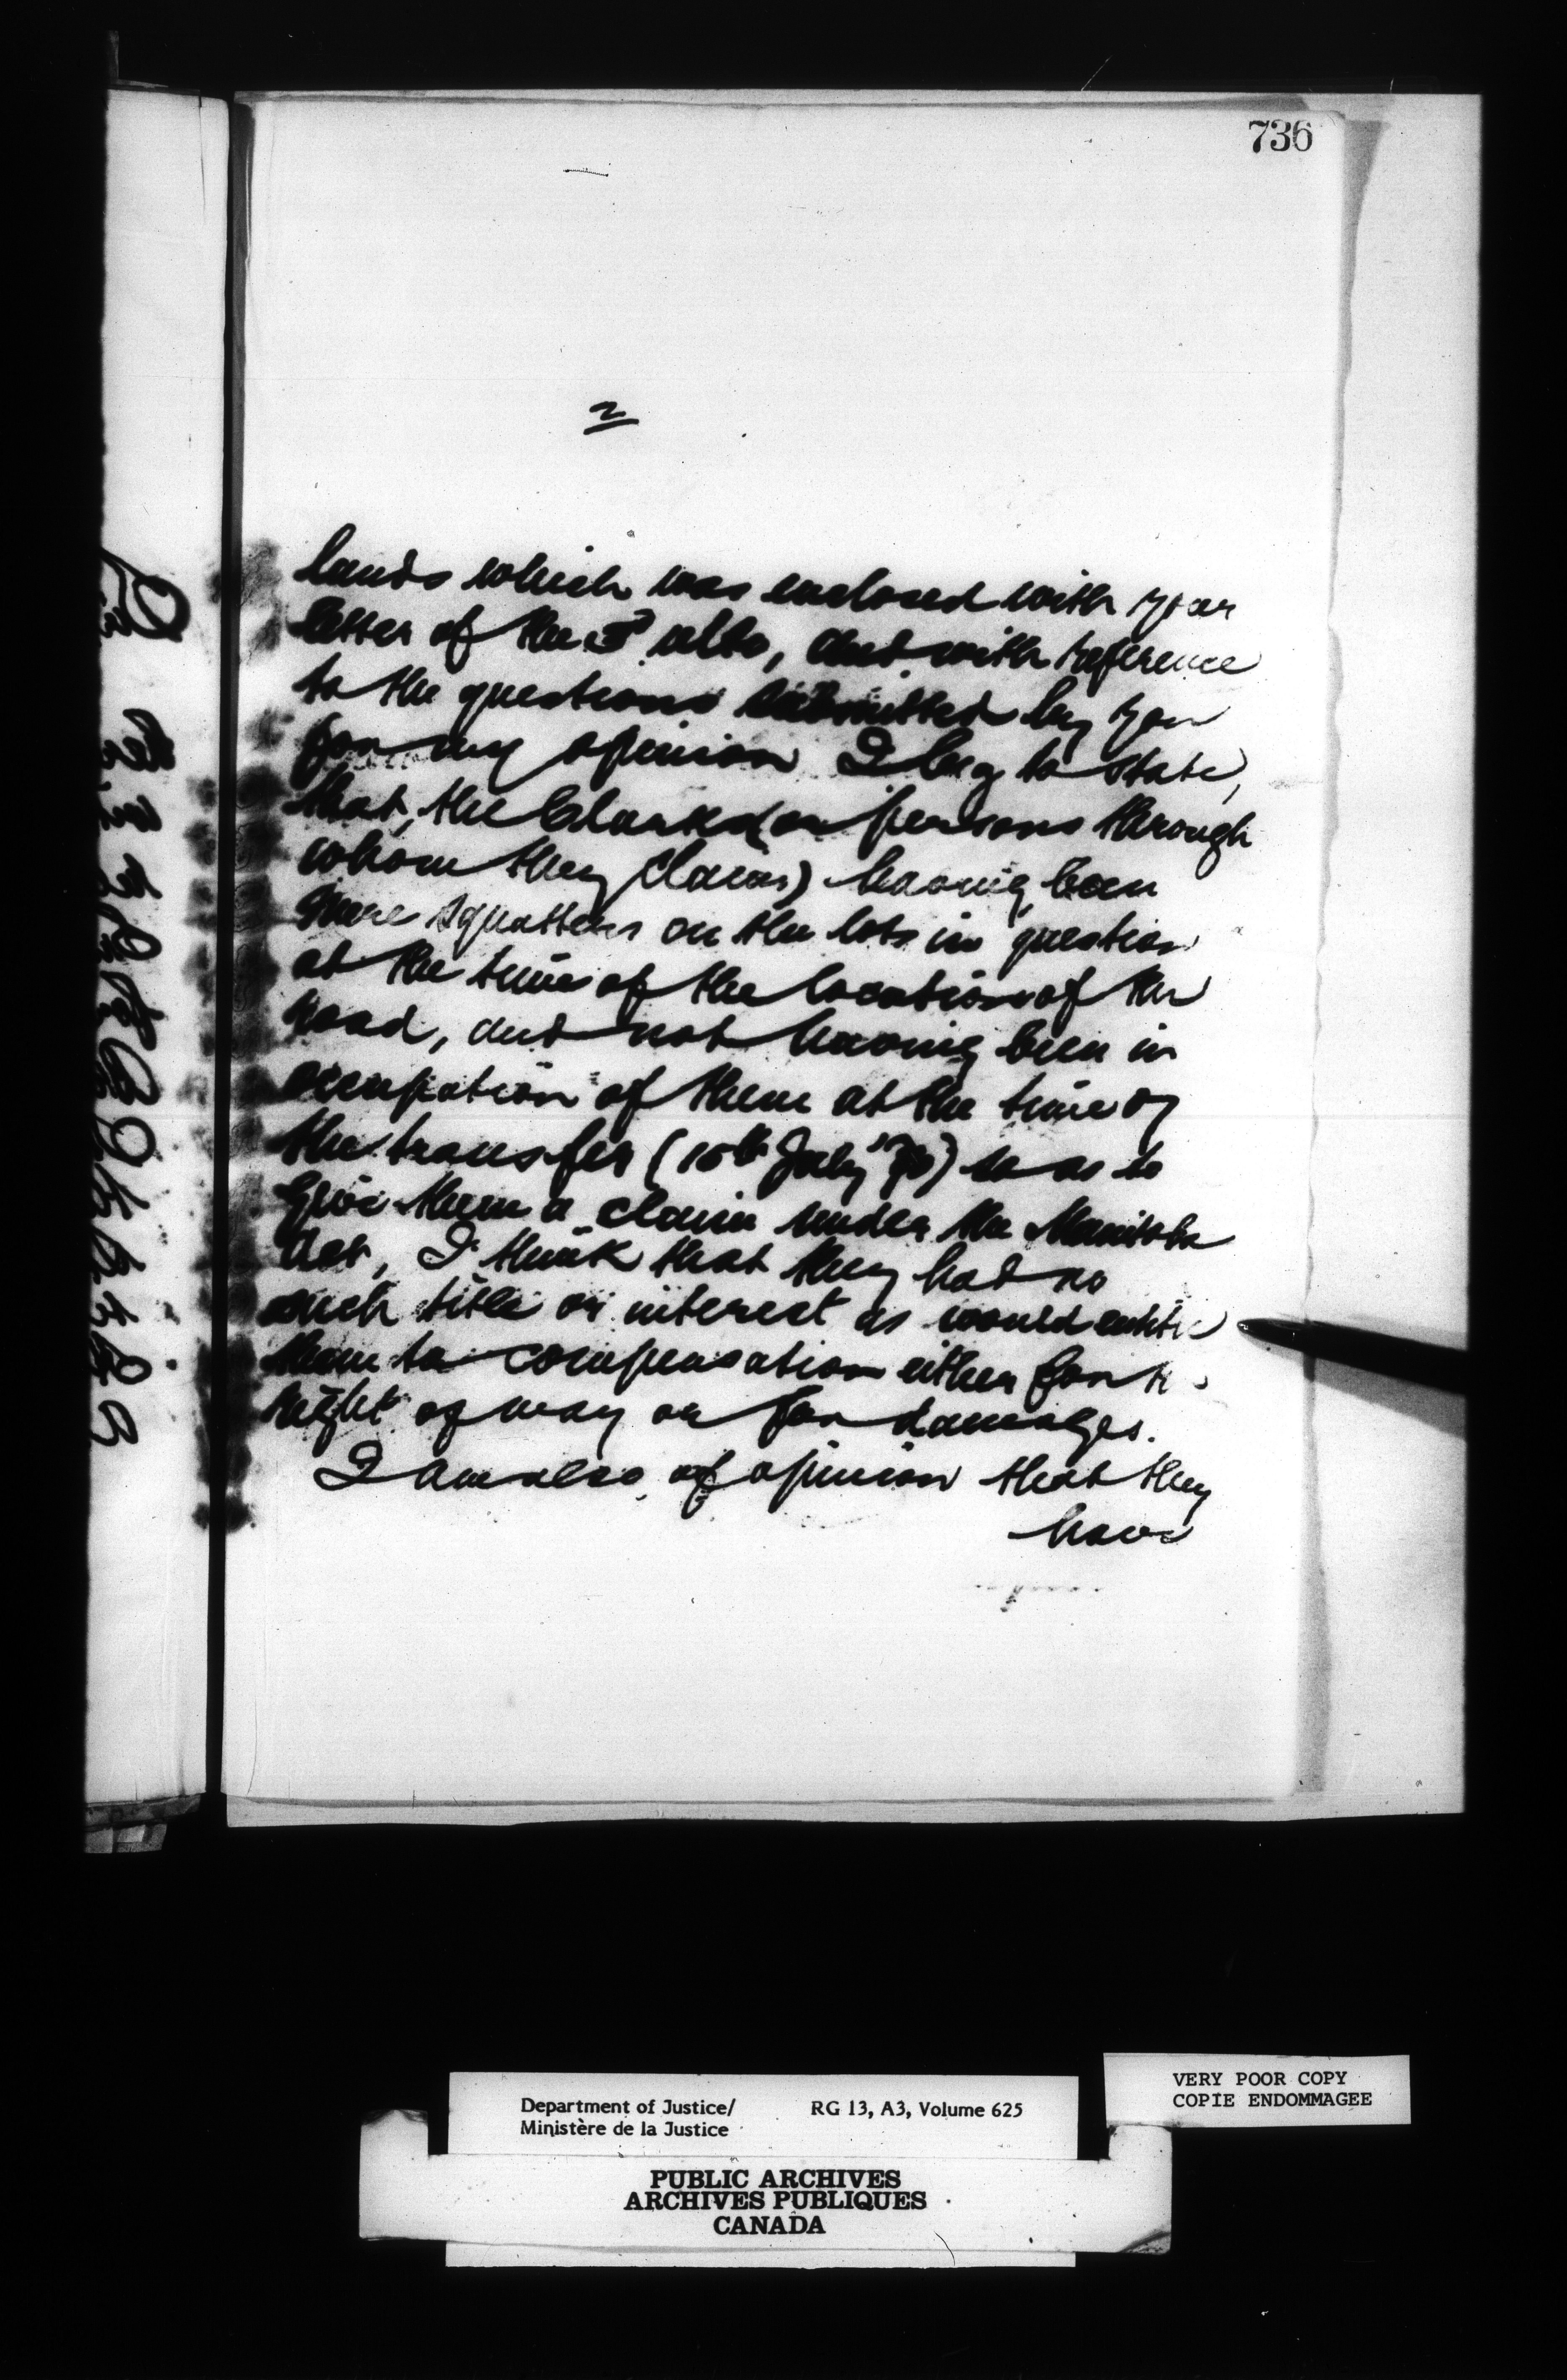 736
2
lands which was enclosed with your
letter of the 5th ulto, and with reference
to the questions submitted by you
for my opinion I beg to state,
that, the Clarks (or persons through
whom they claim) having been
mere squatters on the lots in question
at the time of the location of the
road, and not having been in
occupation of them at the time of
the transfer (15th July '70) so as to
give them a claim under the Manitoba
Act, I think that they had no
such title or interest as would entitle
them to compensation either for
right of way or for damages.
I am also of opinion that they
have
Department of Justice/ RG 13, A3, Volume 625
Ministère de la Justice
VERY POOR COPY
COPIE ENDOMMAGEE
PUBLIC ARCHIVES
ARCHIVES PUBLIQUES
CANADA